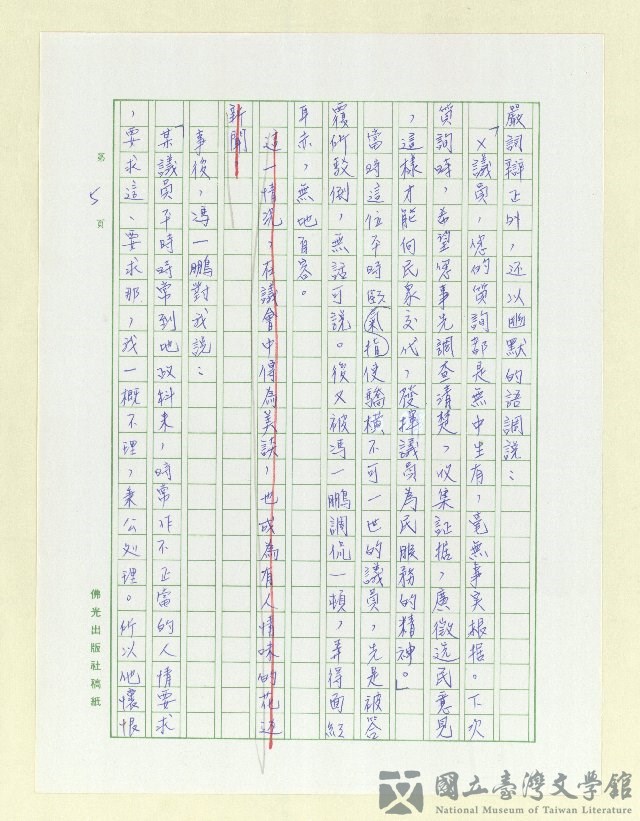 嚴詞辯正外，还以幽默的語調說：
「×議員，您的質詢都是無中生有，毫無事实根据。下次
質詢時，希望您事先調查清楚，收集証据，廣徵选民意見
，這樣才能向民衆交代，發揮議員為民服務的精神。」
當時這位平時頤氣指使驕橫不可一世的議員，先是被答
覆所駁倒，無話可說。後又被馮一鵬調侃一頓，弄得面紅
耳赤，無地自容。
這一情況，在議會中傳為美談，也成為有人情味的花边
新聞
事後，馮一鵬對我說：
「某議員平時時常到地政科来，時常作不正當的人情要求
，要求這、要求那，我一概不理，秉公処理。所以他懷恨
第 5 頁
佛光出版社稿紙
國立臺灣文學館
National Museum of Taiwan Literature